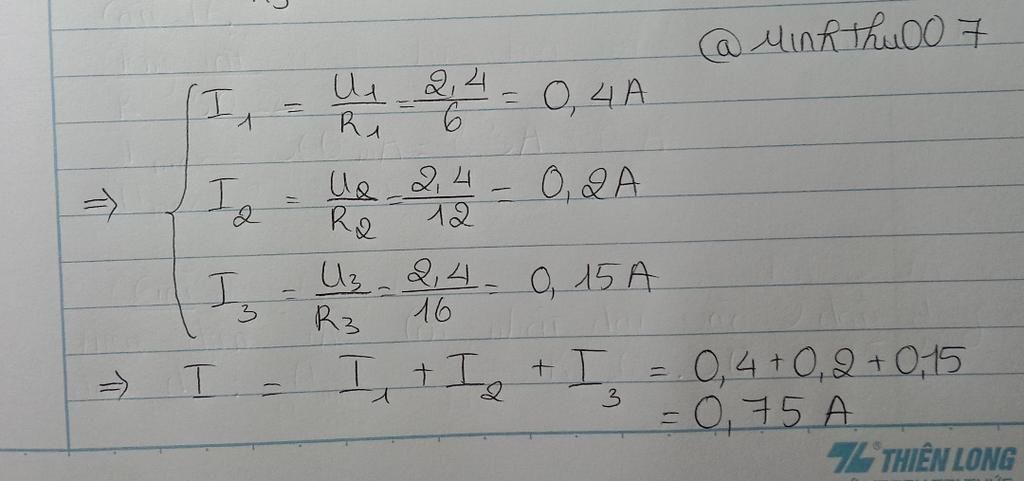 @MinhThu007
I₁ = U₁/R₁ = 2,4/6 = 0,4A
⇒ I₂ = U₂/R₂ = 2,4/12 = 0,2A
I₃ = U₃/R₃ = 2,4/16 = 0,15A
⇒ I = I₁ + I₂ + I₃ = 0,4 + 0,2 + 0,15
= 0,75 A
THIÊN LONG